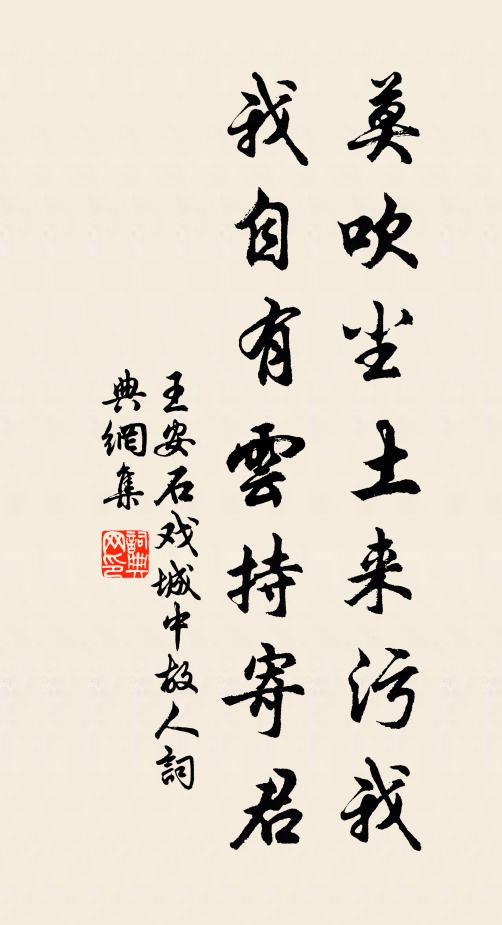 莫吹尘土来污我
我自有雲持寄君
王安石戏城中故人詞
典網集
詞典网印